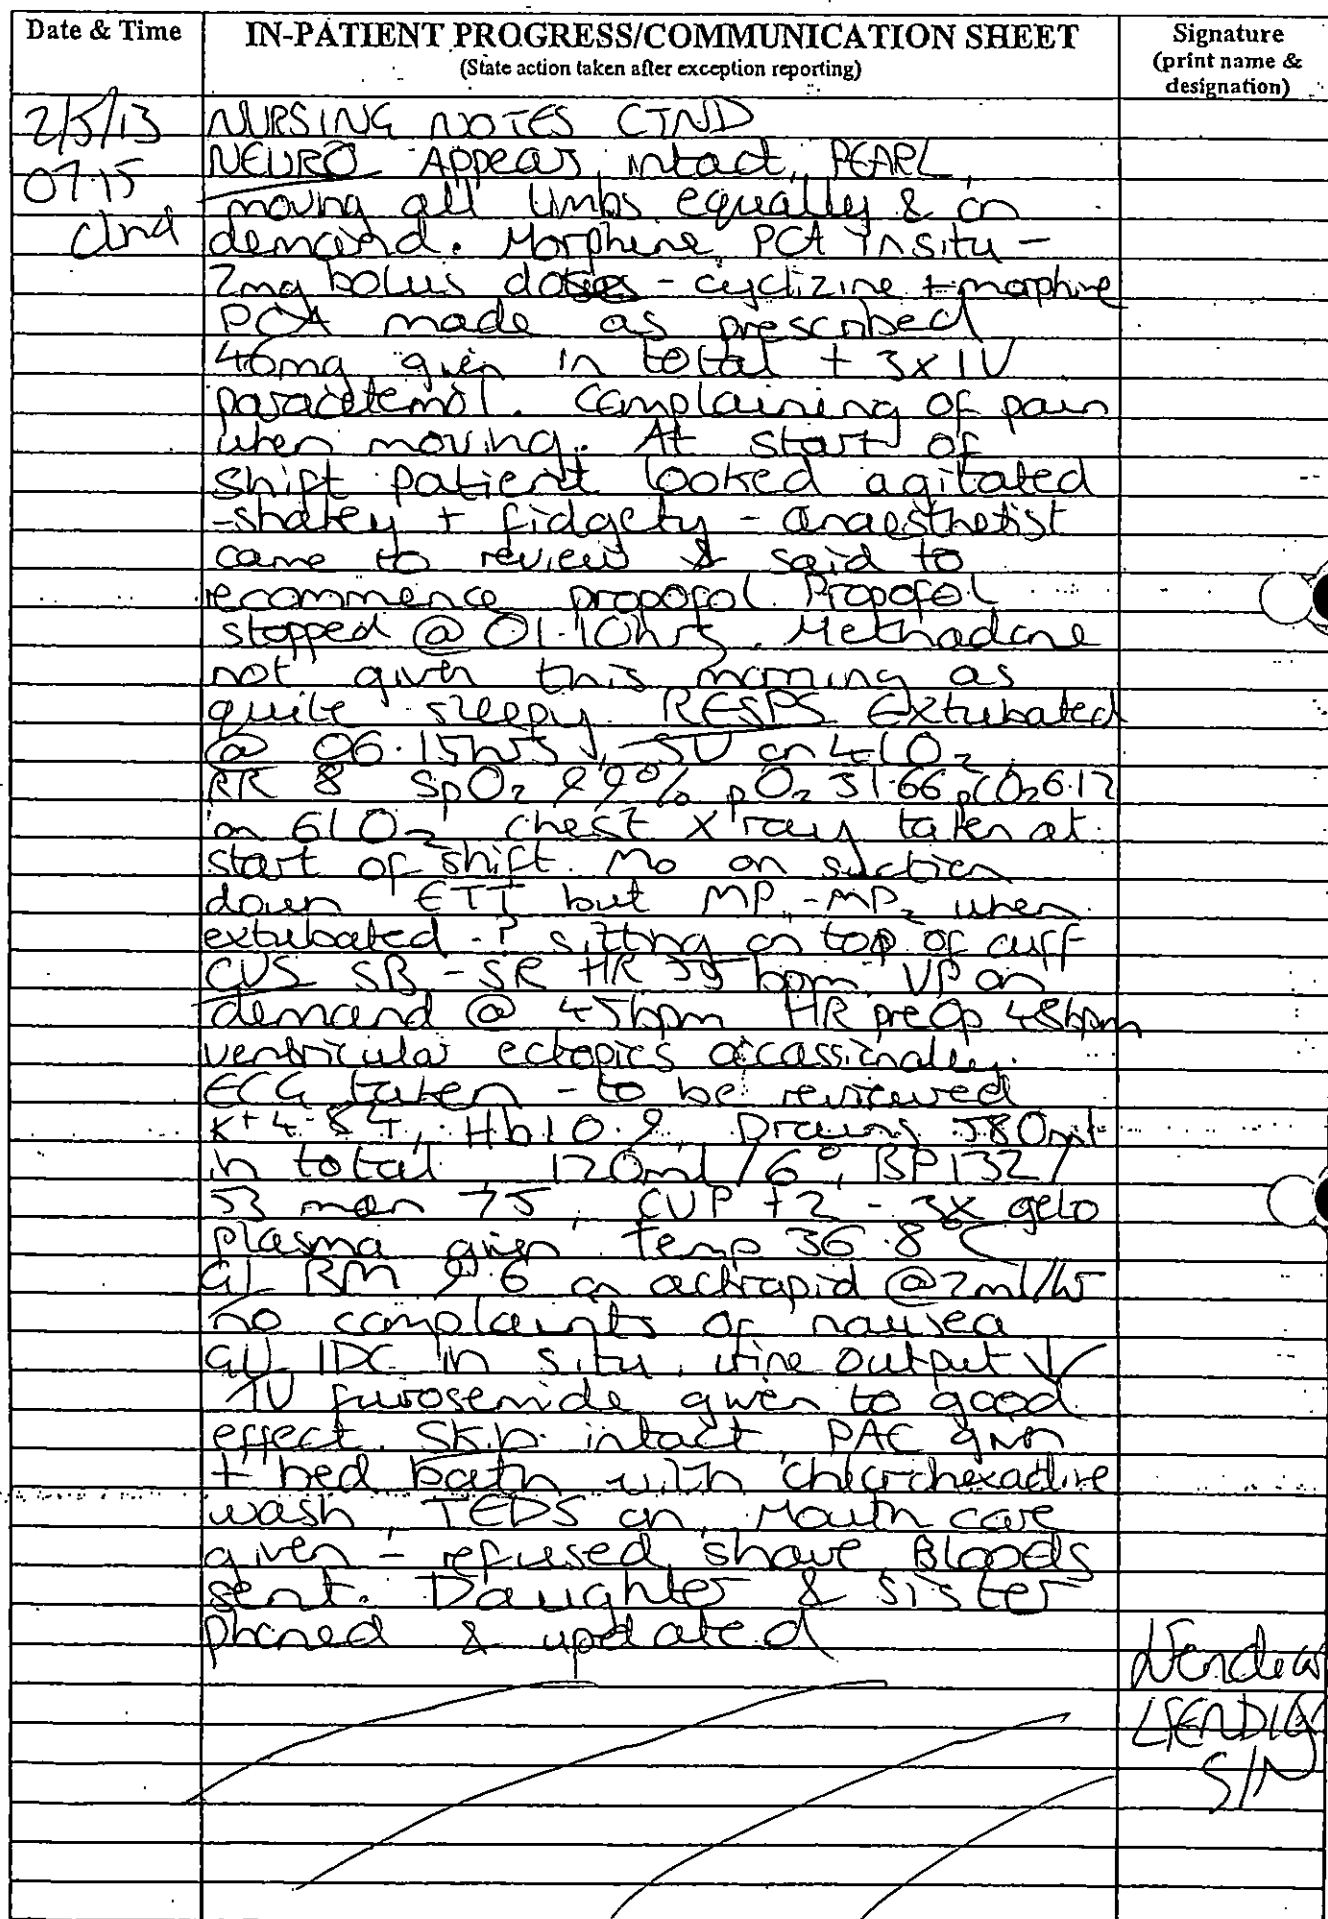 Date & Time
IN-PATIENT PROGRESS/COMMUNICATION SHEET
(State action taken after exception reporting)
Signature
(print name &
designation)
2/5/13
07.15
NURSING NOTES CTND
NEURO Appears intact, PEARL,
moving all limbs equally & on
demand. Morphine PCA insitu -
2mg bolus doses - cyclizine + morphine
PCA made as prescribed
46mg given in total + 3x IV
paracetemol. Complaining of pain
when moving. At start of
shift patient looked agitated
- shakey + fidgety - anaesthetist
came to review & said to
recommence propofol. Propofol
stopped @ 01.10hrs. Methadone
not given this morning as
quite sleepy. RESPS Extubated
@ 06.15hrs, SV on 4lO2,
RR 8 SpO2 99% pO2 31.66 pCO2 6.12
on 6lO2 chest x ray taken at
start of shift. Mo on suction
down ETT but MP - MP2 when
extubated - ? sitting on top of cuff
CVS SB - SR HR 55 bpm VP on
demand @ 45bpm HR preOp 48bpm
ventricular ectopics occassionally.
ECG taken - to be reviewed
K+ 4.84, Hb 10.9, Drains 580ml
in total 120ml/6°, BP 132/
53 mean 75, CVP +2 - 3x gelo
plasma given Temp 36.8°C
GI BM 9.6 on actrapid @ 2ml/hr
no complaints of nausea
GU IDC in situ, urine output ✓
IV furosemide given to good
effect. Skin intact, PAC given
+ bed bath with chlorhexadine
wash, TEDS on, Mouth care
given - refused shave. Bloods
sent. Daughter & sister
phoned & updated
S/N